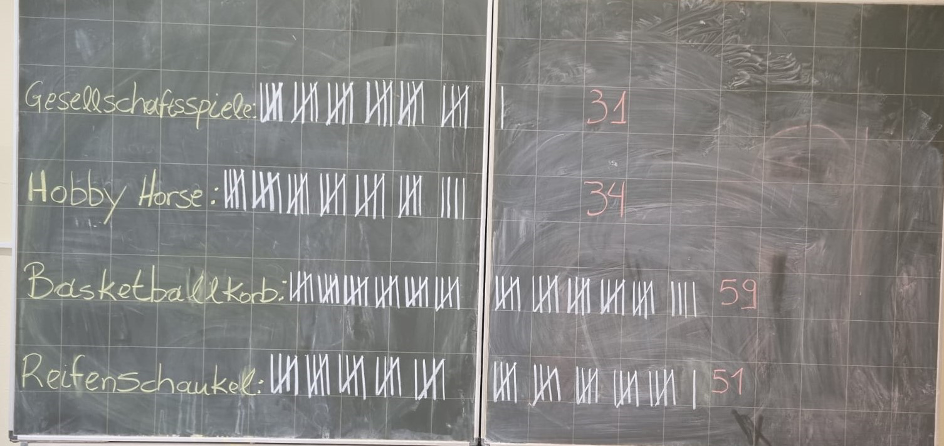 Gesellschaftsspiele: 31
Hobby Horse: 34
Basketballkorb: 59
Reifenschaukel: 51